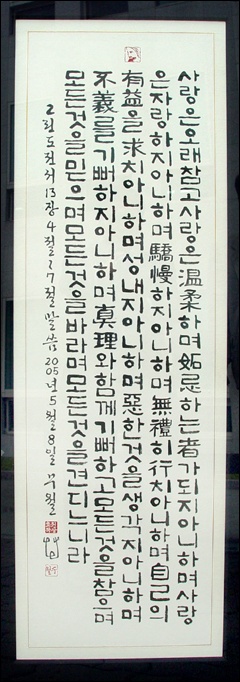 사랑은오래참고사랑은溫柔하며妬忌하는者가되지아니하며사랑
은자랑하지아니하며驕慢하지아니하며無禮히行치아니하며自己의
有益을求치아니하며성내지아니하며惡한것을생각지아니하며
不義를기뻐하지아니하며真理와함께기뻐하고모든것을참으며
모든것을믿으며모든것을바라며모든것을견디느니라
고린도전서13장4절~7절말씀2005년5월8일 무월